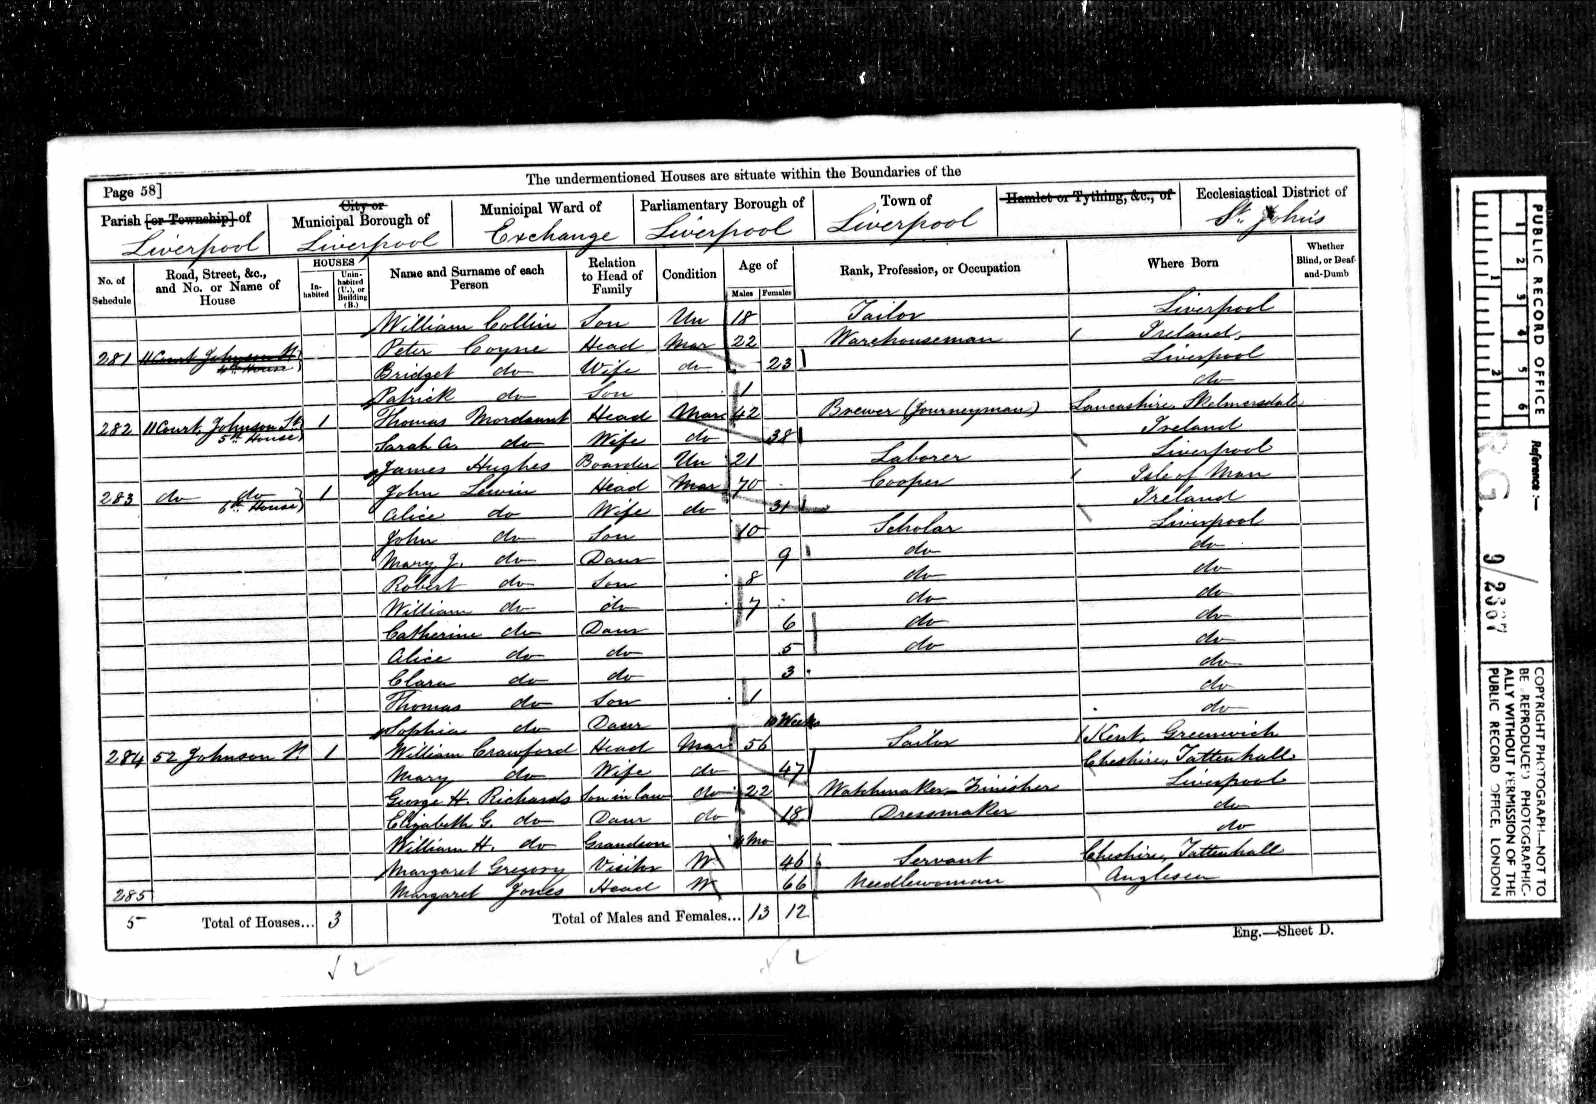 The undermentioned Houses are situate within the Boundaries of the
Page 58]
Parish [or Township] of Liverpool
City or Municipal Borough of Liverpool
Municipal Ward of Exchange
Parliamentary Borough of Liverpool
Town of Liverpool
Hamlet or Tything, &c., of
Ecclesiastical District of St. Johns
No. of Schedule
Road, Street, &c., and No. or Name of House
HOUSES
In-habited
Unin-habited (U.), or Building (B.)
Name and Surname of each Person
Relation to Head of Family
Condition
Age of
Males
Females
Rank, Profession, or Occupation
Where Born
Whether Blind, or Deaf-and-Dumb
William Collin Son Un 18 Tailor Liverpool
281 11 Court Johnson St 4th House Peter Coyne Head Mar 22 Warehouseman Ireland
Bridget do Wife do 23 Liverpool
Patrick do Son 1 do
282 11 Court Johnson St 5th House 1 Thomas Mordaunt Head Mar 42 Brewer (Journeyman) Lancashire, Skelmersdale
Sarah A. do Wife do 38 Ireland
James Hughes Boarder Un 21 Laborer Liverpool
283 do do 6th House 1 John Lewin Head Mar 70 Cooper Isle of Man
Alice do Wife do 31 Ireland
John do Son 10 Scholar Liverpool
Mary J. do Daur 9 do do
Robert do Son 8 do do
William do do 7 do do
Catherine do Daur 6 do do
Alice do do 5 do do
Clara do do 3 do
Thomas do Son 1 do
Sophia do Daur Weeks do
284 52 Johnson St. 1 William Crawford Head Mar 56 Sailor Kent, Greenwich
Mary do Wife do 47 Cheshire, Tattenhall
George H. Richards Son in law do 22 Watchmaker-Finisher Liverpool
Elizabeth G. do Daur do 18 Dressmaker do
William H. do Grandson Mo do
Margaret Gregory Visitor W 46 Servant Cheshire, Tattenhall
285 Margaret Jones Head W 66 Needlewoman Anglesea
5 Total of Houses... 3 Total of Males and Females... 13 12
Eng.—Sheet D.
√ 2
√ 2
PUBLIC RECORD OFFICE
1 2 3 4 5 6
1 2
Reference :—
R.G. 9/2667
COPYRIGHT PHOTOGRAPH—NOT TO
BE REPRODUCED PHOTOGRAPHIC-
ALLY WITHOUT PERMISSION OF THE
PUBLIC RECORD OFFICE, LONDON